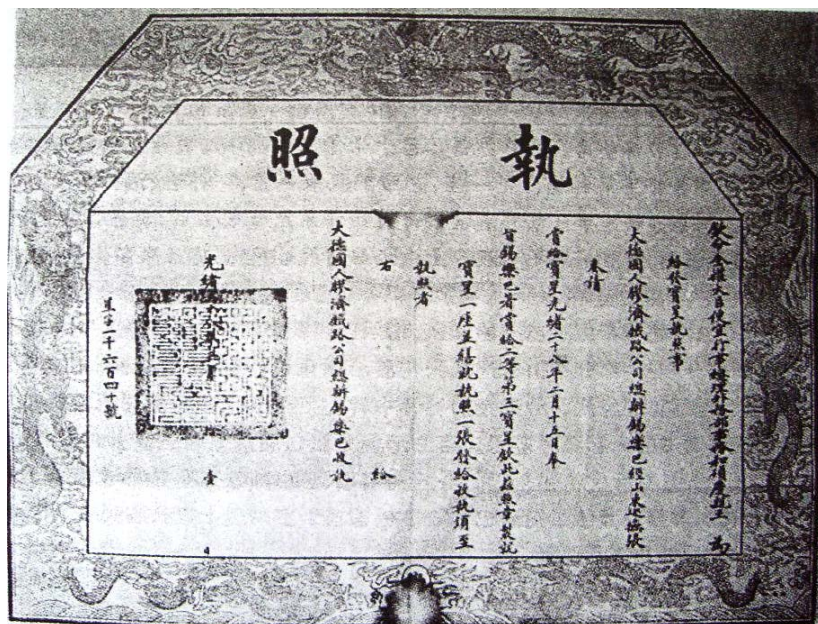 執照
欽命全權大臣便宜行事總理外務部事務和碩慶親王 為
給發寶星執照事
大德國人膠濟鐵路公司總辦錫樂巴經山東巡撫張
奏請
賞給寶星光緒二十八年二月十五日奉
旨錫樂巴著賞給二等第三寶星欽此茲照章製就
寶星一座並繕此執照一張發給收執須至
執照者
右 給
大德國人膠濟鐵路公司總辦錫樂巴收執
光緒
壹
日
星字一千六百四十號